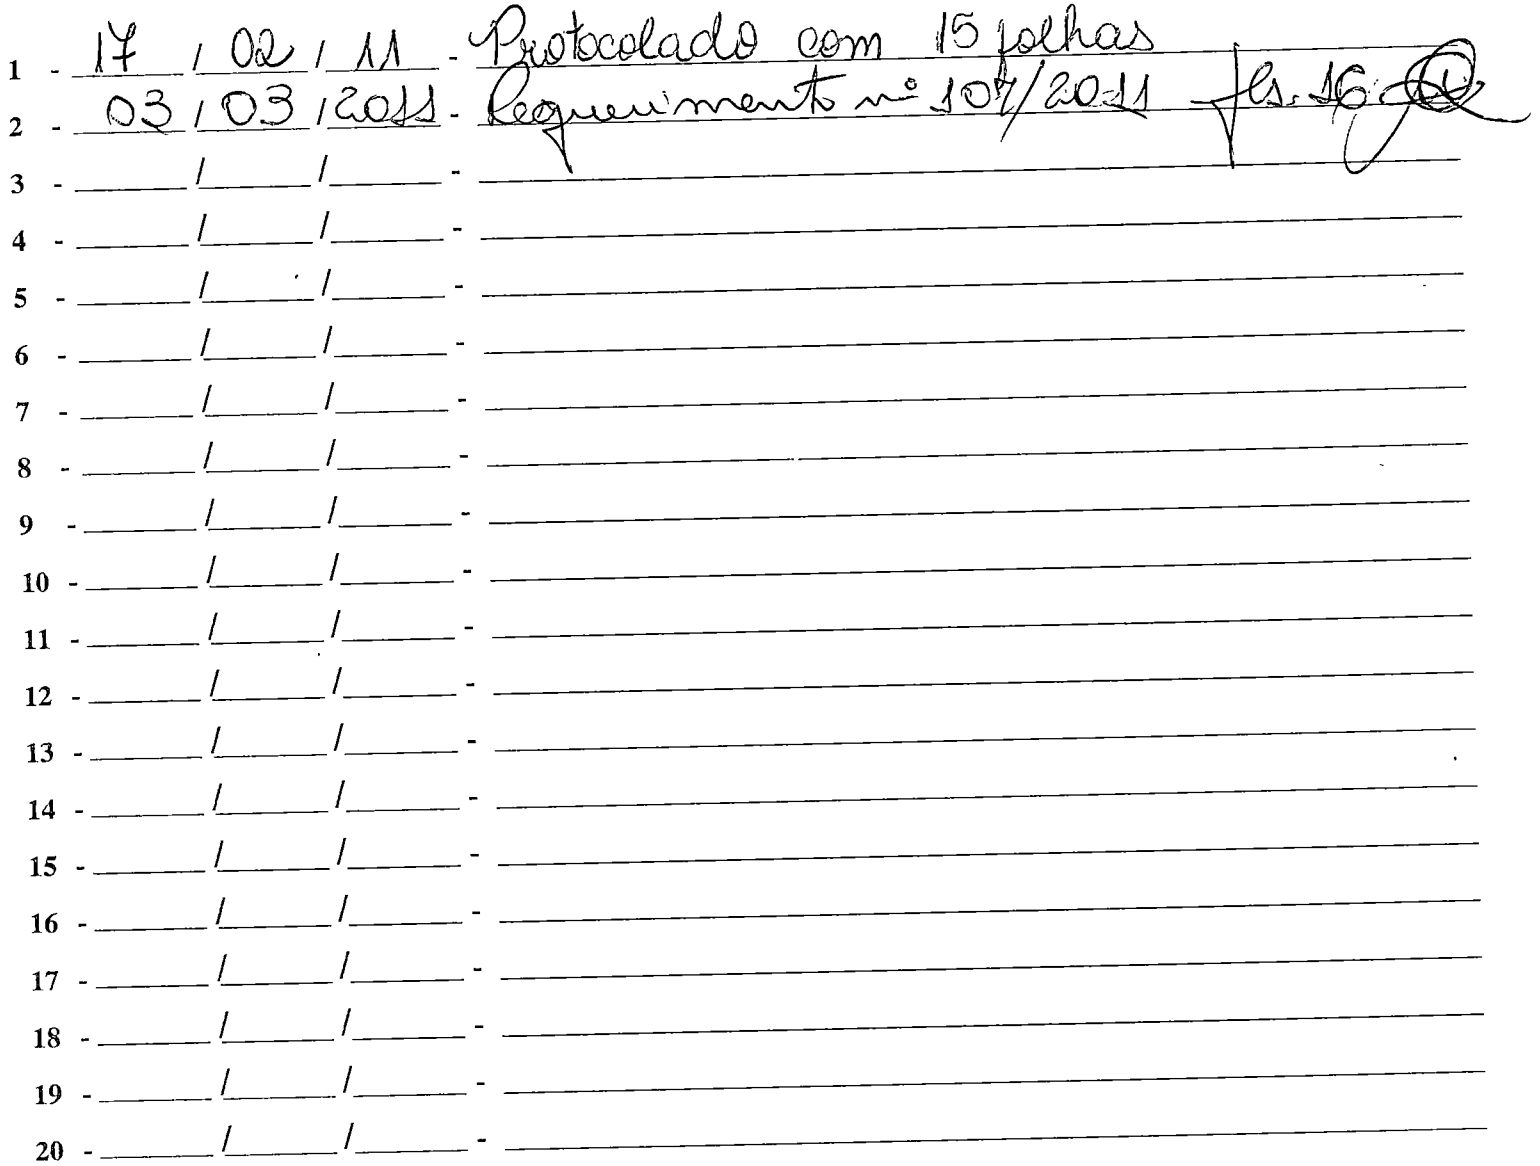 1 - 17 / 02 / 11 - Protocolado com 15 folhas
2 - 03 / 03 / 2011 - Requerimento nº 107/2011 fls. 16
3 - / / -
4 - / / -
5 - / / -
6 - / / -
7 - / / -
8 - / / -
9 - / / -
10 - / / -
11 - / / -
12 - / / -
13 - / / -
14 - / / -
15 - / / -
16 - / / -
17 - / / -
18 - / / -
19 - / / -
20 - / / -